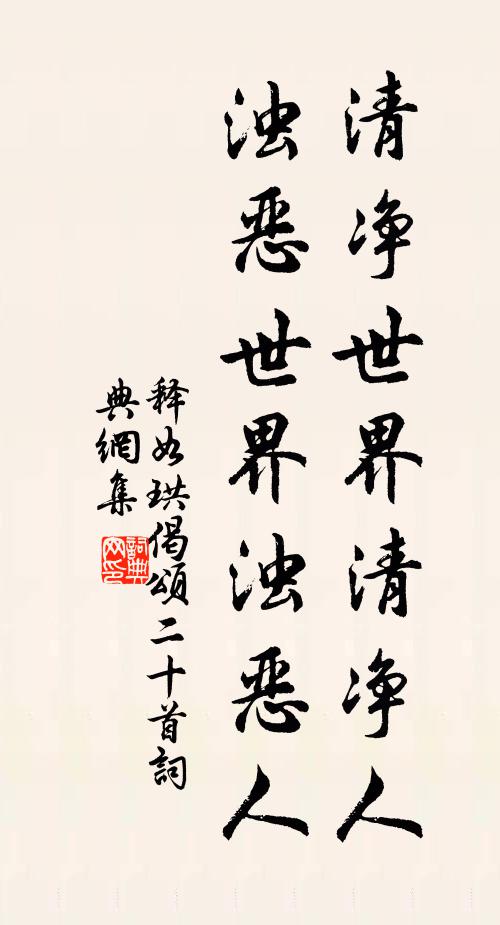 清净世界清净人
浊恶世界浊恶人
释如珙偈頌二十首詞
典網集
詞典
网印